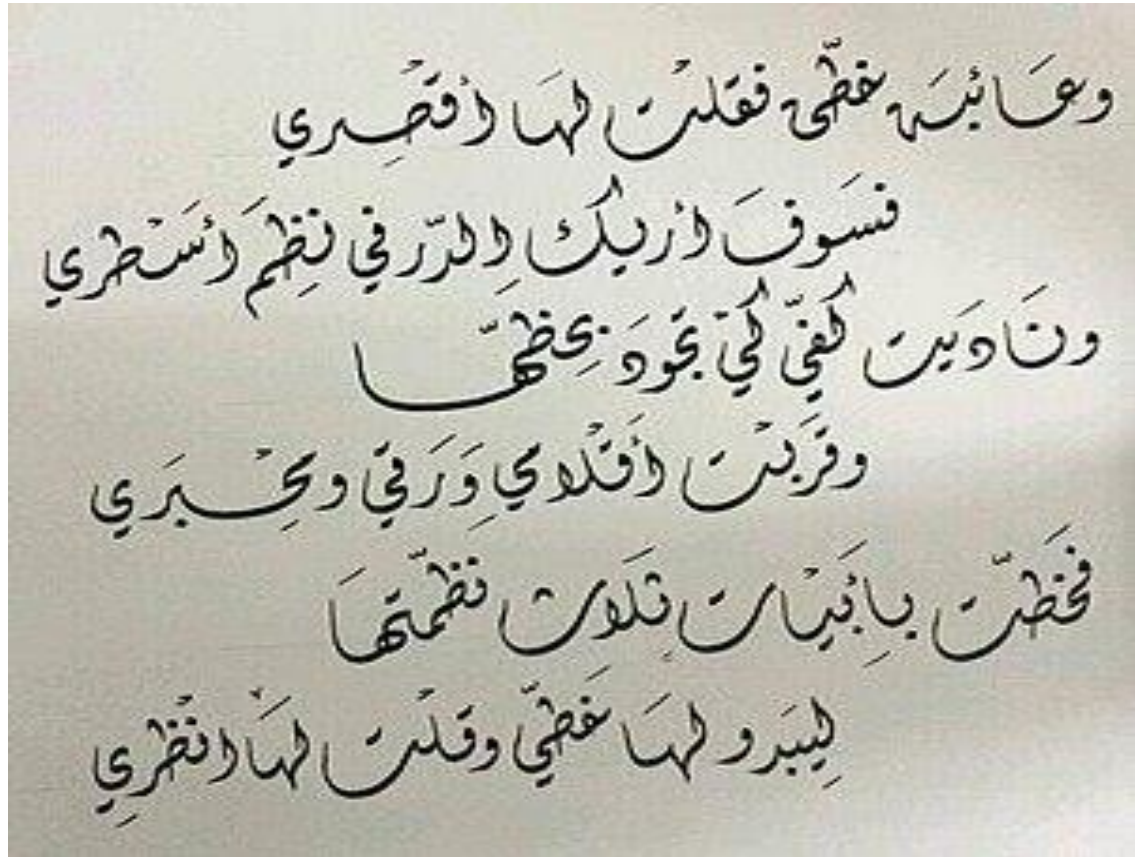 وعَائبة خطّي فقلتُ لهَا أقصِري
فسَوفَ أريكِ الدّر في نظِم أسَطري
ونَاديت كفّي كيْ تجودَ بخطّها
وقرّبْت أقْلامي وَرَقي ومحِْبَري
فخَطّت بأِبْيَات ثَلاث نظمّتهَا
لِيَبدو لهَا خَطّي وقلْت لهَا انْظُرِي